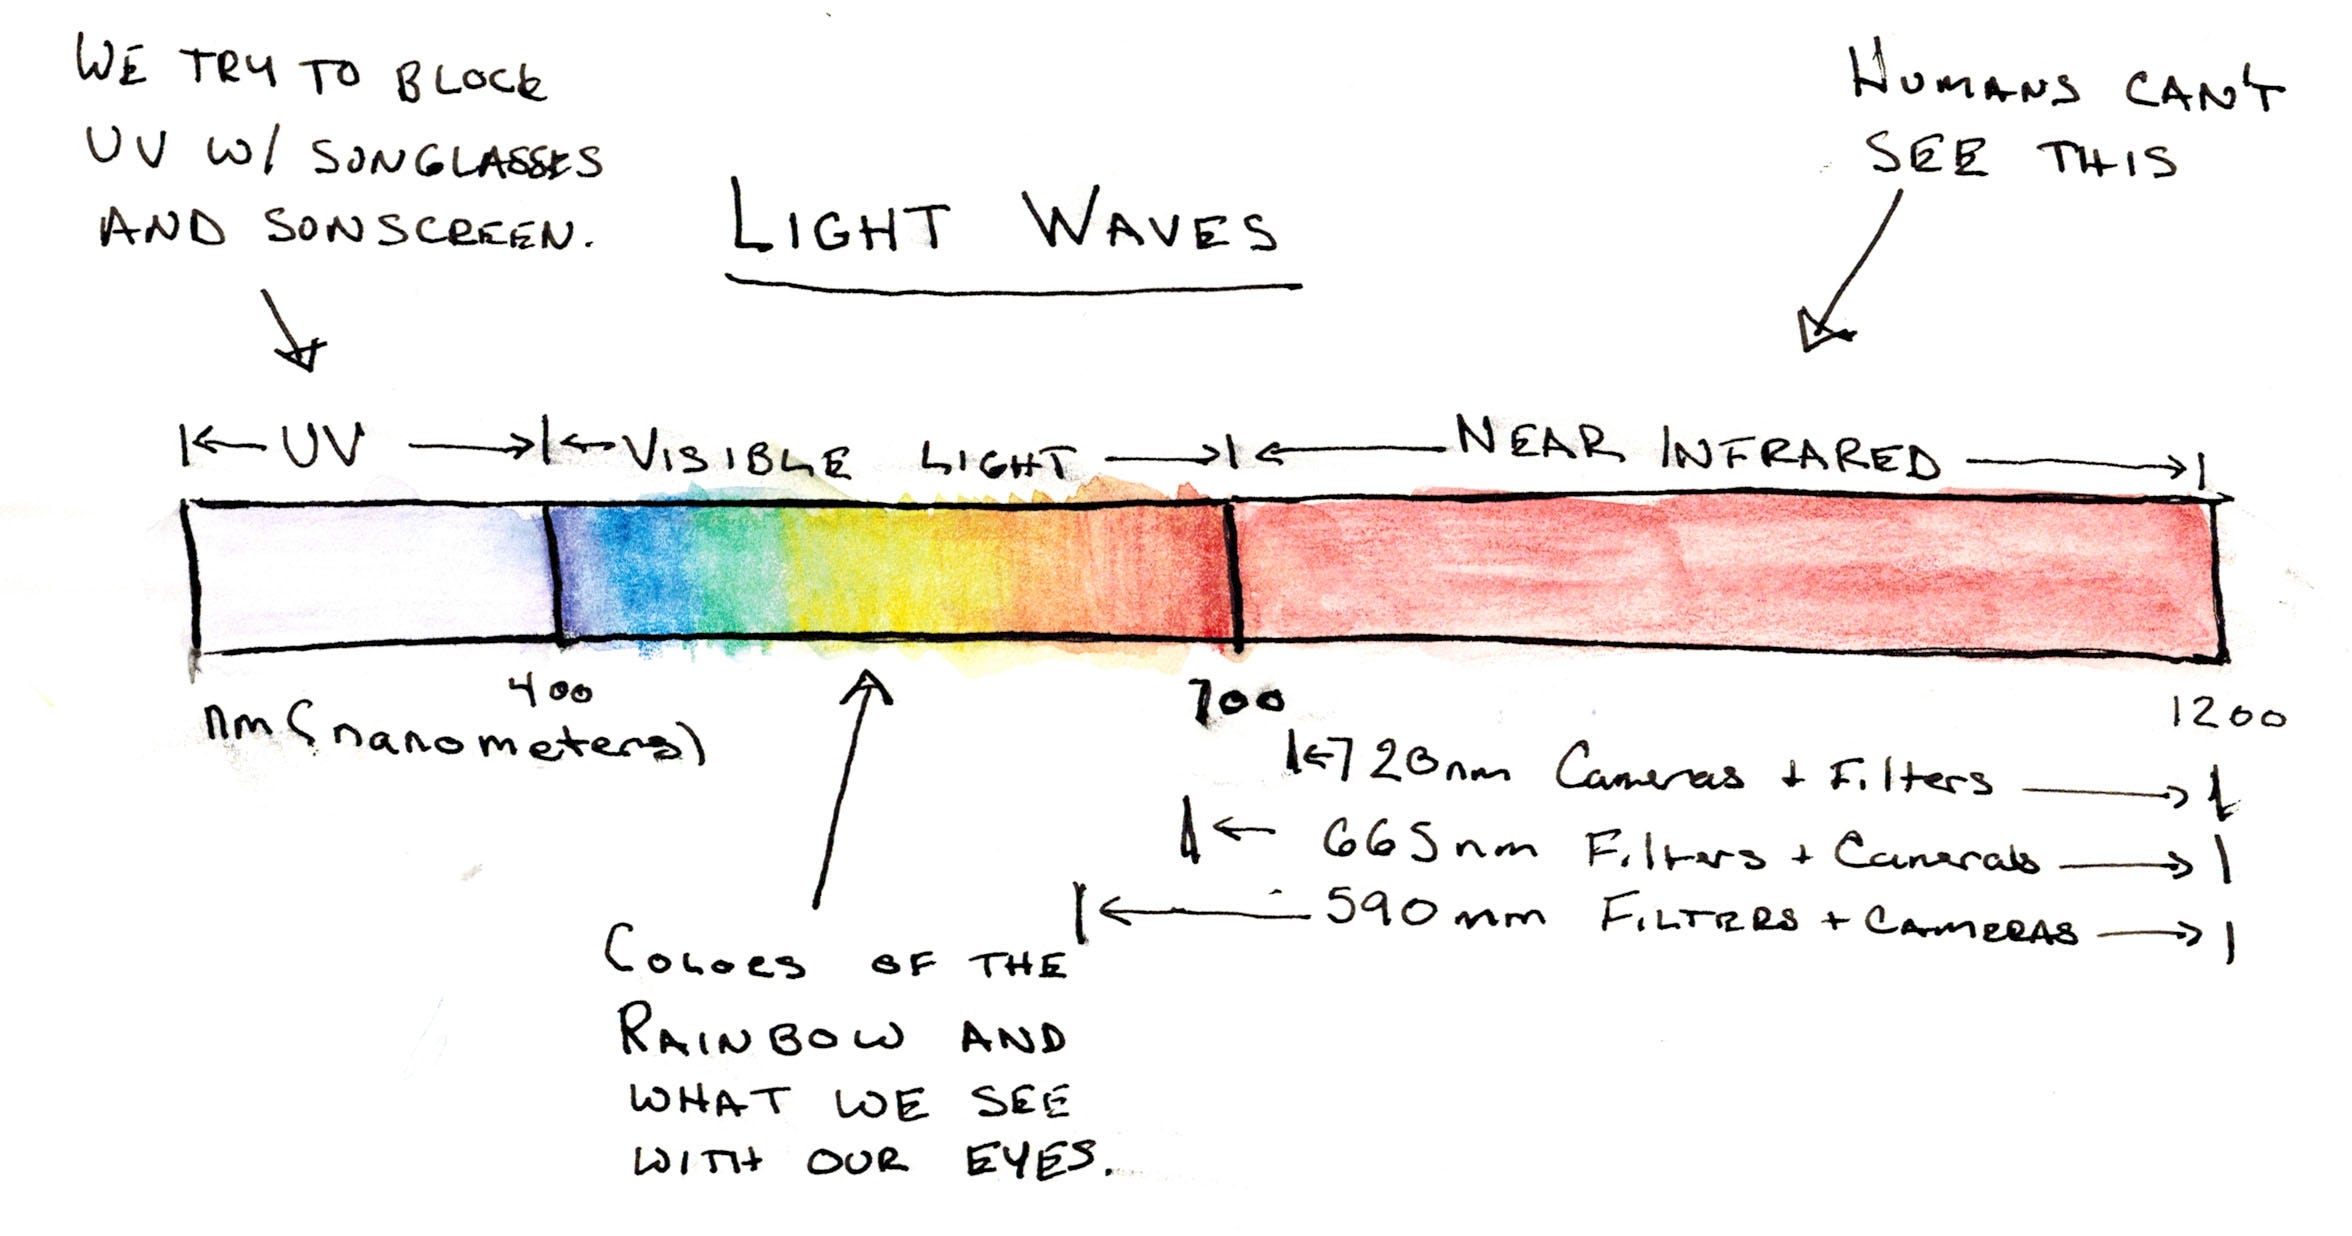 WE TRY TO BLOCK
UV W/ SUNGLASSES
AND SUNSCREEN.
LIGHT WAVES
HUMANS CAN'T
SEE THIS
UV
VISIBLE LIGHT
NEAR INFRARED
400
700
1200
nm (nanometers)
720nm Cameras + Filters
665nm Filters + Cameras
590nm FILTERS + CAMERAS
COLORS OF THE
RAINBOW AND
WHAT WE SEE
WITH OUR EYES.